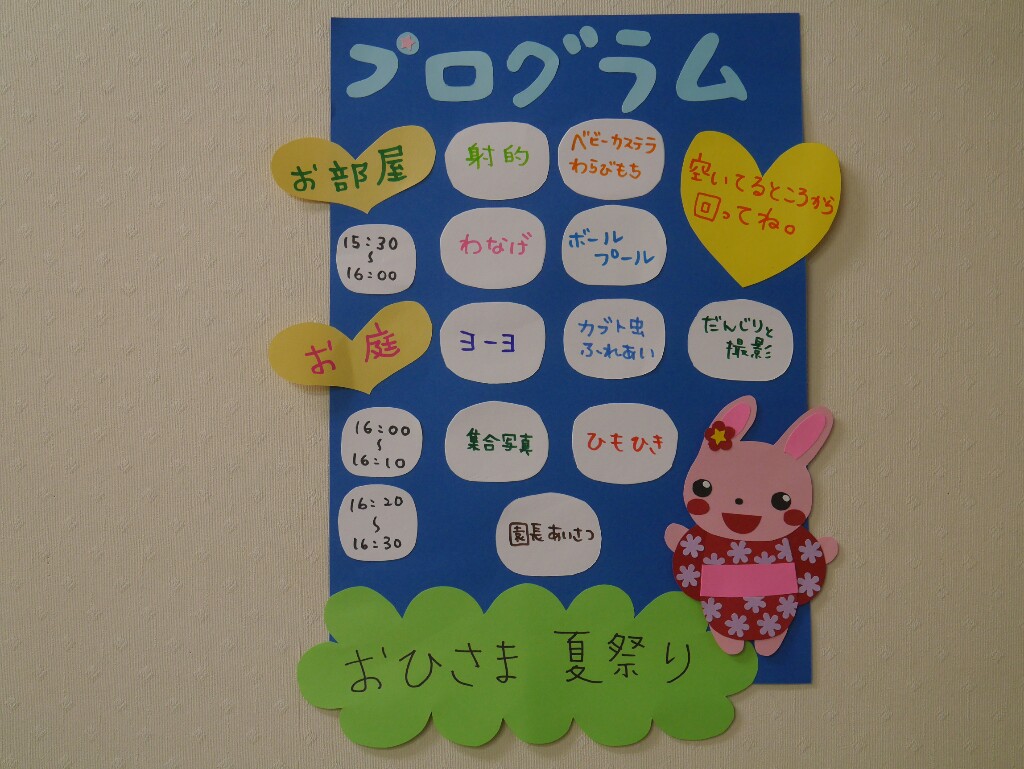 プログラム
お部屋
射的
ベビーカステラ
わらびもち
空いてるところから
回ってね。
15:30
~
16:00
わなげ
ボール
プール
お庭
ヨーヨ
カブト虫
ふれあい
だんじりと
撮影
16:00
~
16:10
集合写真
ひもひき
16:20
~
16:30
園長あいさつ
おひさま 夏祭り